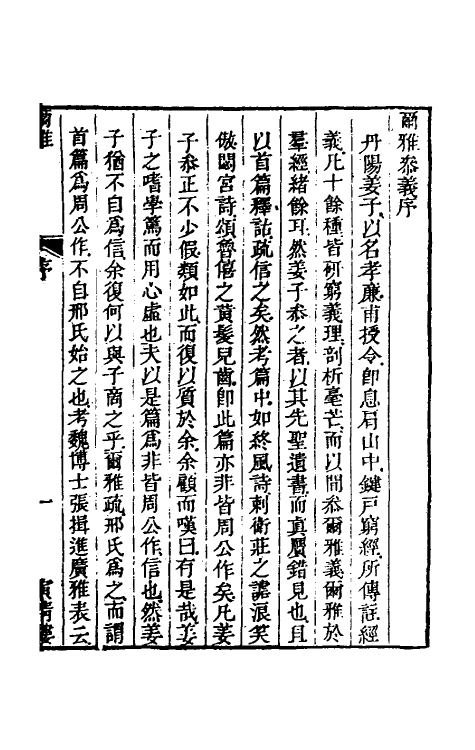 爾雅叅義序
丹陽姜子以名孝廉甫授令卽息肩山中鍵戸窮經所傳註經
義凡十餘種皆硏窮義理剖析毫芒而以間叅爾雅義爾雅於
羣經緒餘耳然姜子叅之者以其先聖遺書而眞贋錯見也且
以首篇釋詁疏信之矣然考篇中如終風詩刺衛莊之謔浪笑
傲閟宮詩頌魯僖之黃髮兒齒卽此篇亦非皆周公作矣凡姜
子叅正不少假類如此而復以質於余余顧而嘆曰有是哉姜
子之嗜學篤而用心虛也夫以是篇爲非皆周公作信也然姜
子猶不自爲信余復何以與子商之乎爾雅疏邢氏爲之而謂
首篇爲周公作不自邢氏始之也考魏博士張揖進廣雅表云
爾雅
序
一
寅清樓